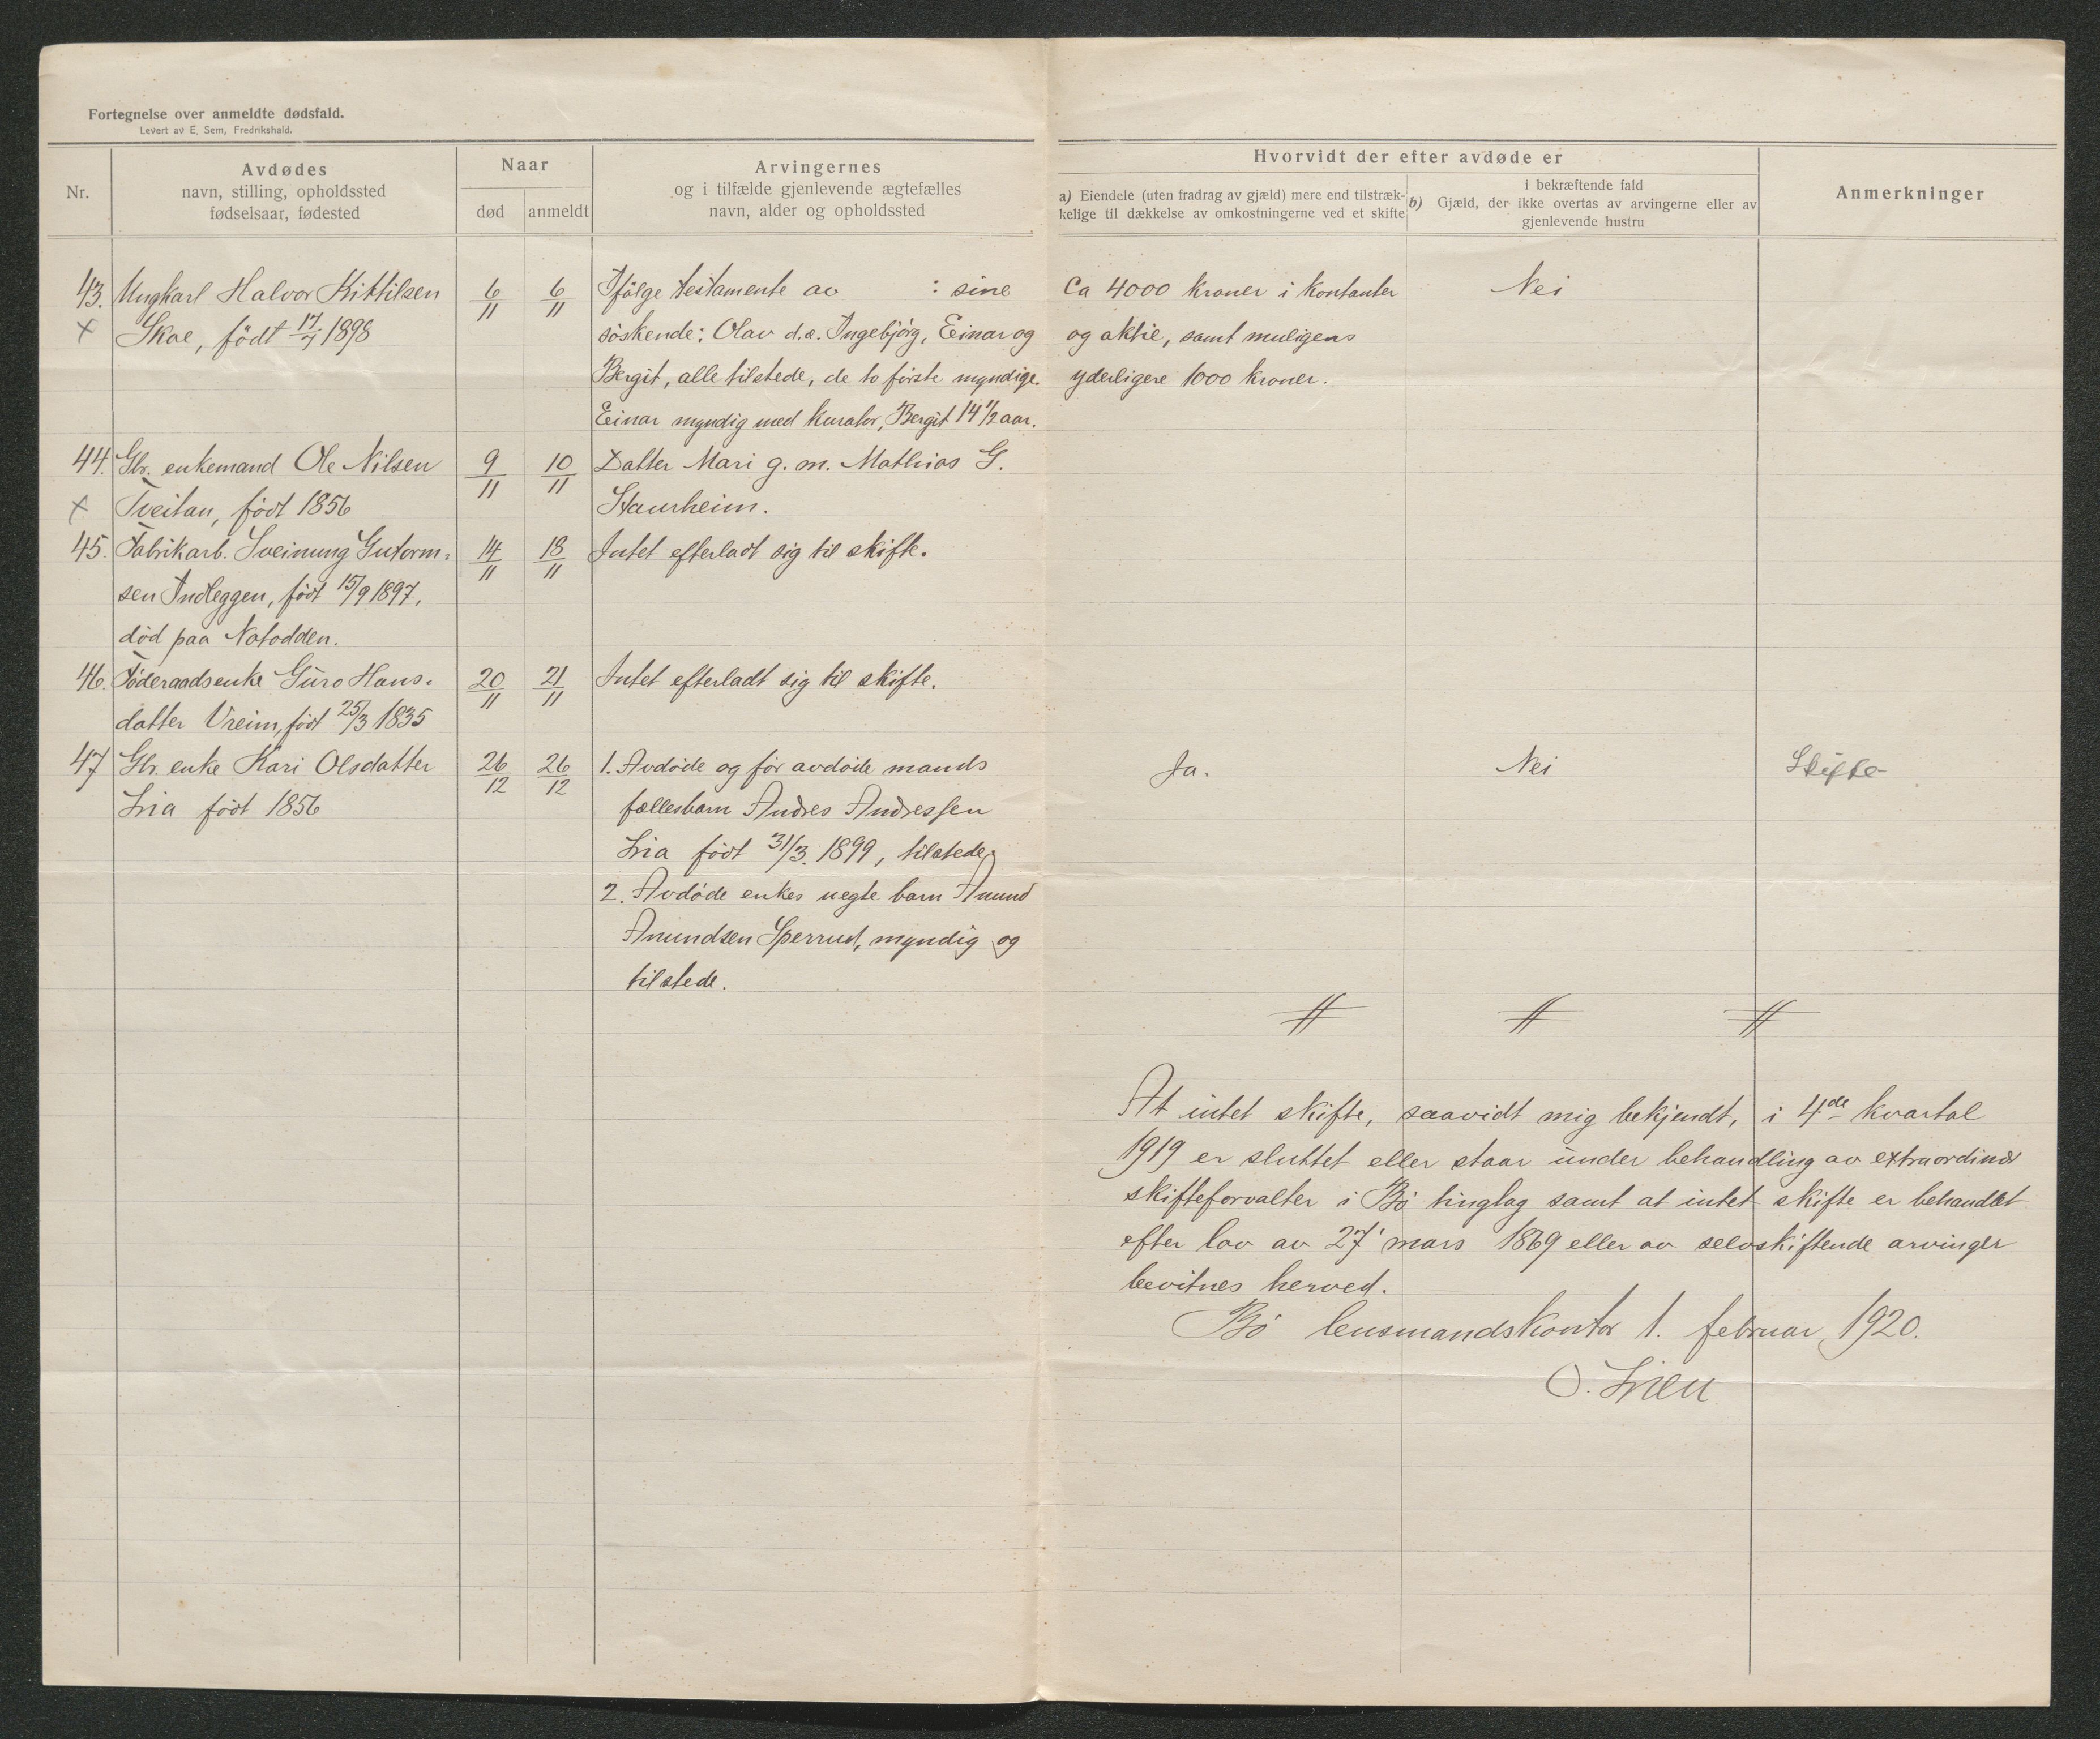 Fortegnelse over anmeldte dødsfald.
Levert av E. Sem, Fredrikshald.
Nr.
Avdødes
navn, stilling, opholdssted
fødselsaar, fødested
Naar
død
anmeldt
Arvingernes
og i tilfælde gjenlevende ægtefælles
navn, alder og opholdssted
Hvorvidt der efter avdøde er
a) Eiendele (uten fradrag av gjæld) mere end tilstræk-
kelige til dækkelse av omkostningerne ved et skifte
i bekræftende fald
b) Gjæld, der ikke overtas av arvingerne eller av
gjenlevende hustru
Anmerkninger
43. Ungkarl Halvor Kittilsen 6/11 6/11 Ifølge testamente av : sine Ca 4000 kroner i kontanter Nei
x Skoe, født 17/4 1898 söskende: Olav d.e. Ingebjörg, Einar og og aktie, samt muligens
Bergit, alle tilstede, de to förste myndige. yderligere 1000 kroner.
Einar myndig med kurator, Bergit 14 1/2 aar.
44. Gbr. enkemand Ole Nilsen 9/11 10/11 Datter Mari g. m. Mathias G.
x Tveitan, född 1856 Staurheim.
45. Fabrikarb. Sveinung Gutorm= 14/11 18/11 Intet efterladt sig til skifte.
sen Indleggen, født 15/9 1897,
död paa Notodden.
46. Föderaadsenke Guro Hans= 20/11 21/11 Intet efterladt sig til skifte.
datter Vreim, född 25/3 1835
47 Gbr. enke Kari Olsdatter 26/12 26/12 1. Avdøde og før avdøde mands Ja. Nei Skifte
Lia født 1856 fællesbarn Andres Andressen
Lia født 31/3. 1899, tilstede,
2. Avdøde enkes uegte barn Anund
Anundsen Sperrud, myndig og
tilstede.
At intet skifte, saavidt mig bekjendt, i 4de kvartal
1919 er sluttet eller staar under behandling av extraordinær
skifteforvalter i Bø tinglag samt at intet skifte er behandlet
efter lov av 27' mars 1869 eller av selvskiftende arvinger
bevitnes herved.
Bø lensmandskontor 1. februar 1920.
O. Lien